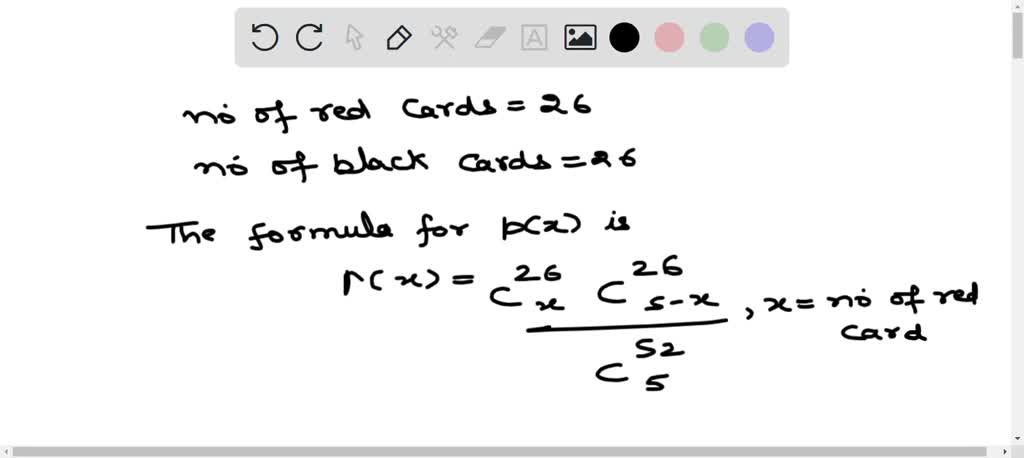 no of red cards = 26
no of black cards = 26
The formula for p(x) is
P(x) = C^{26}_{x} C^{26}_{5-x} / C^{52}_{5} , x = no of red card